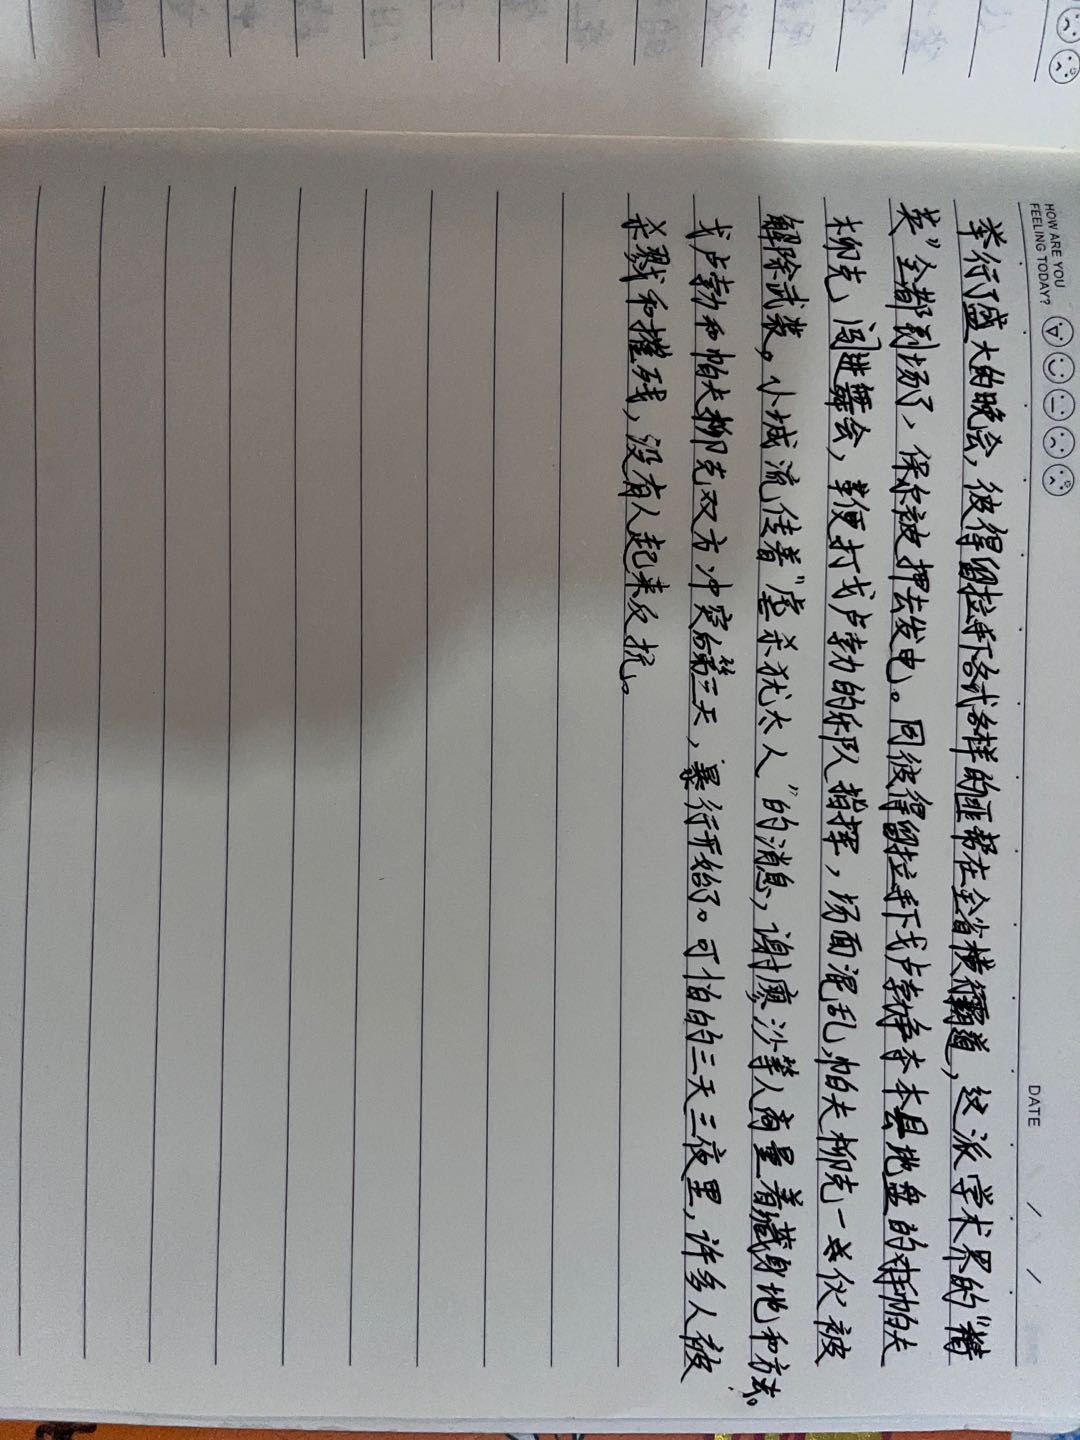 HOW ARE YOU
FEELING TODAY?
DATE / /
举行了盛大的晚会，彼得留拉手下各式各样的匪帮在全省横行霸道，这派学术界的“精
英”全都到场了，保尔被押去发电。同彼得留拉手下戈卢勃争夺本县地盘的对手帕夫
柳克，闯进舞会，鞭打戈卢勃的乐队指挥，场面混乱，帕夫柳克一伙被
解除武装。小城流传着“虐杀犹太人”的消息，谢廖沙等人商量着藏身地和方法。
戈卢勃和帕夫柳克双方冲突后第三天，暴行开始了。可怕的三天三夜里，许多人被
杀戮和摧残，没有人起来反抗。